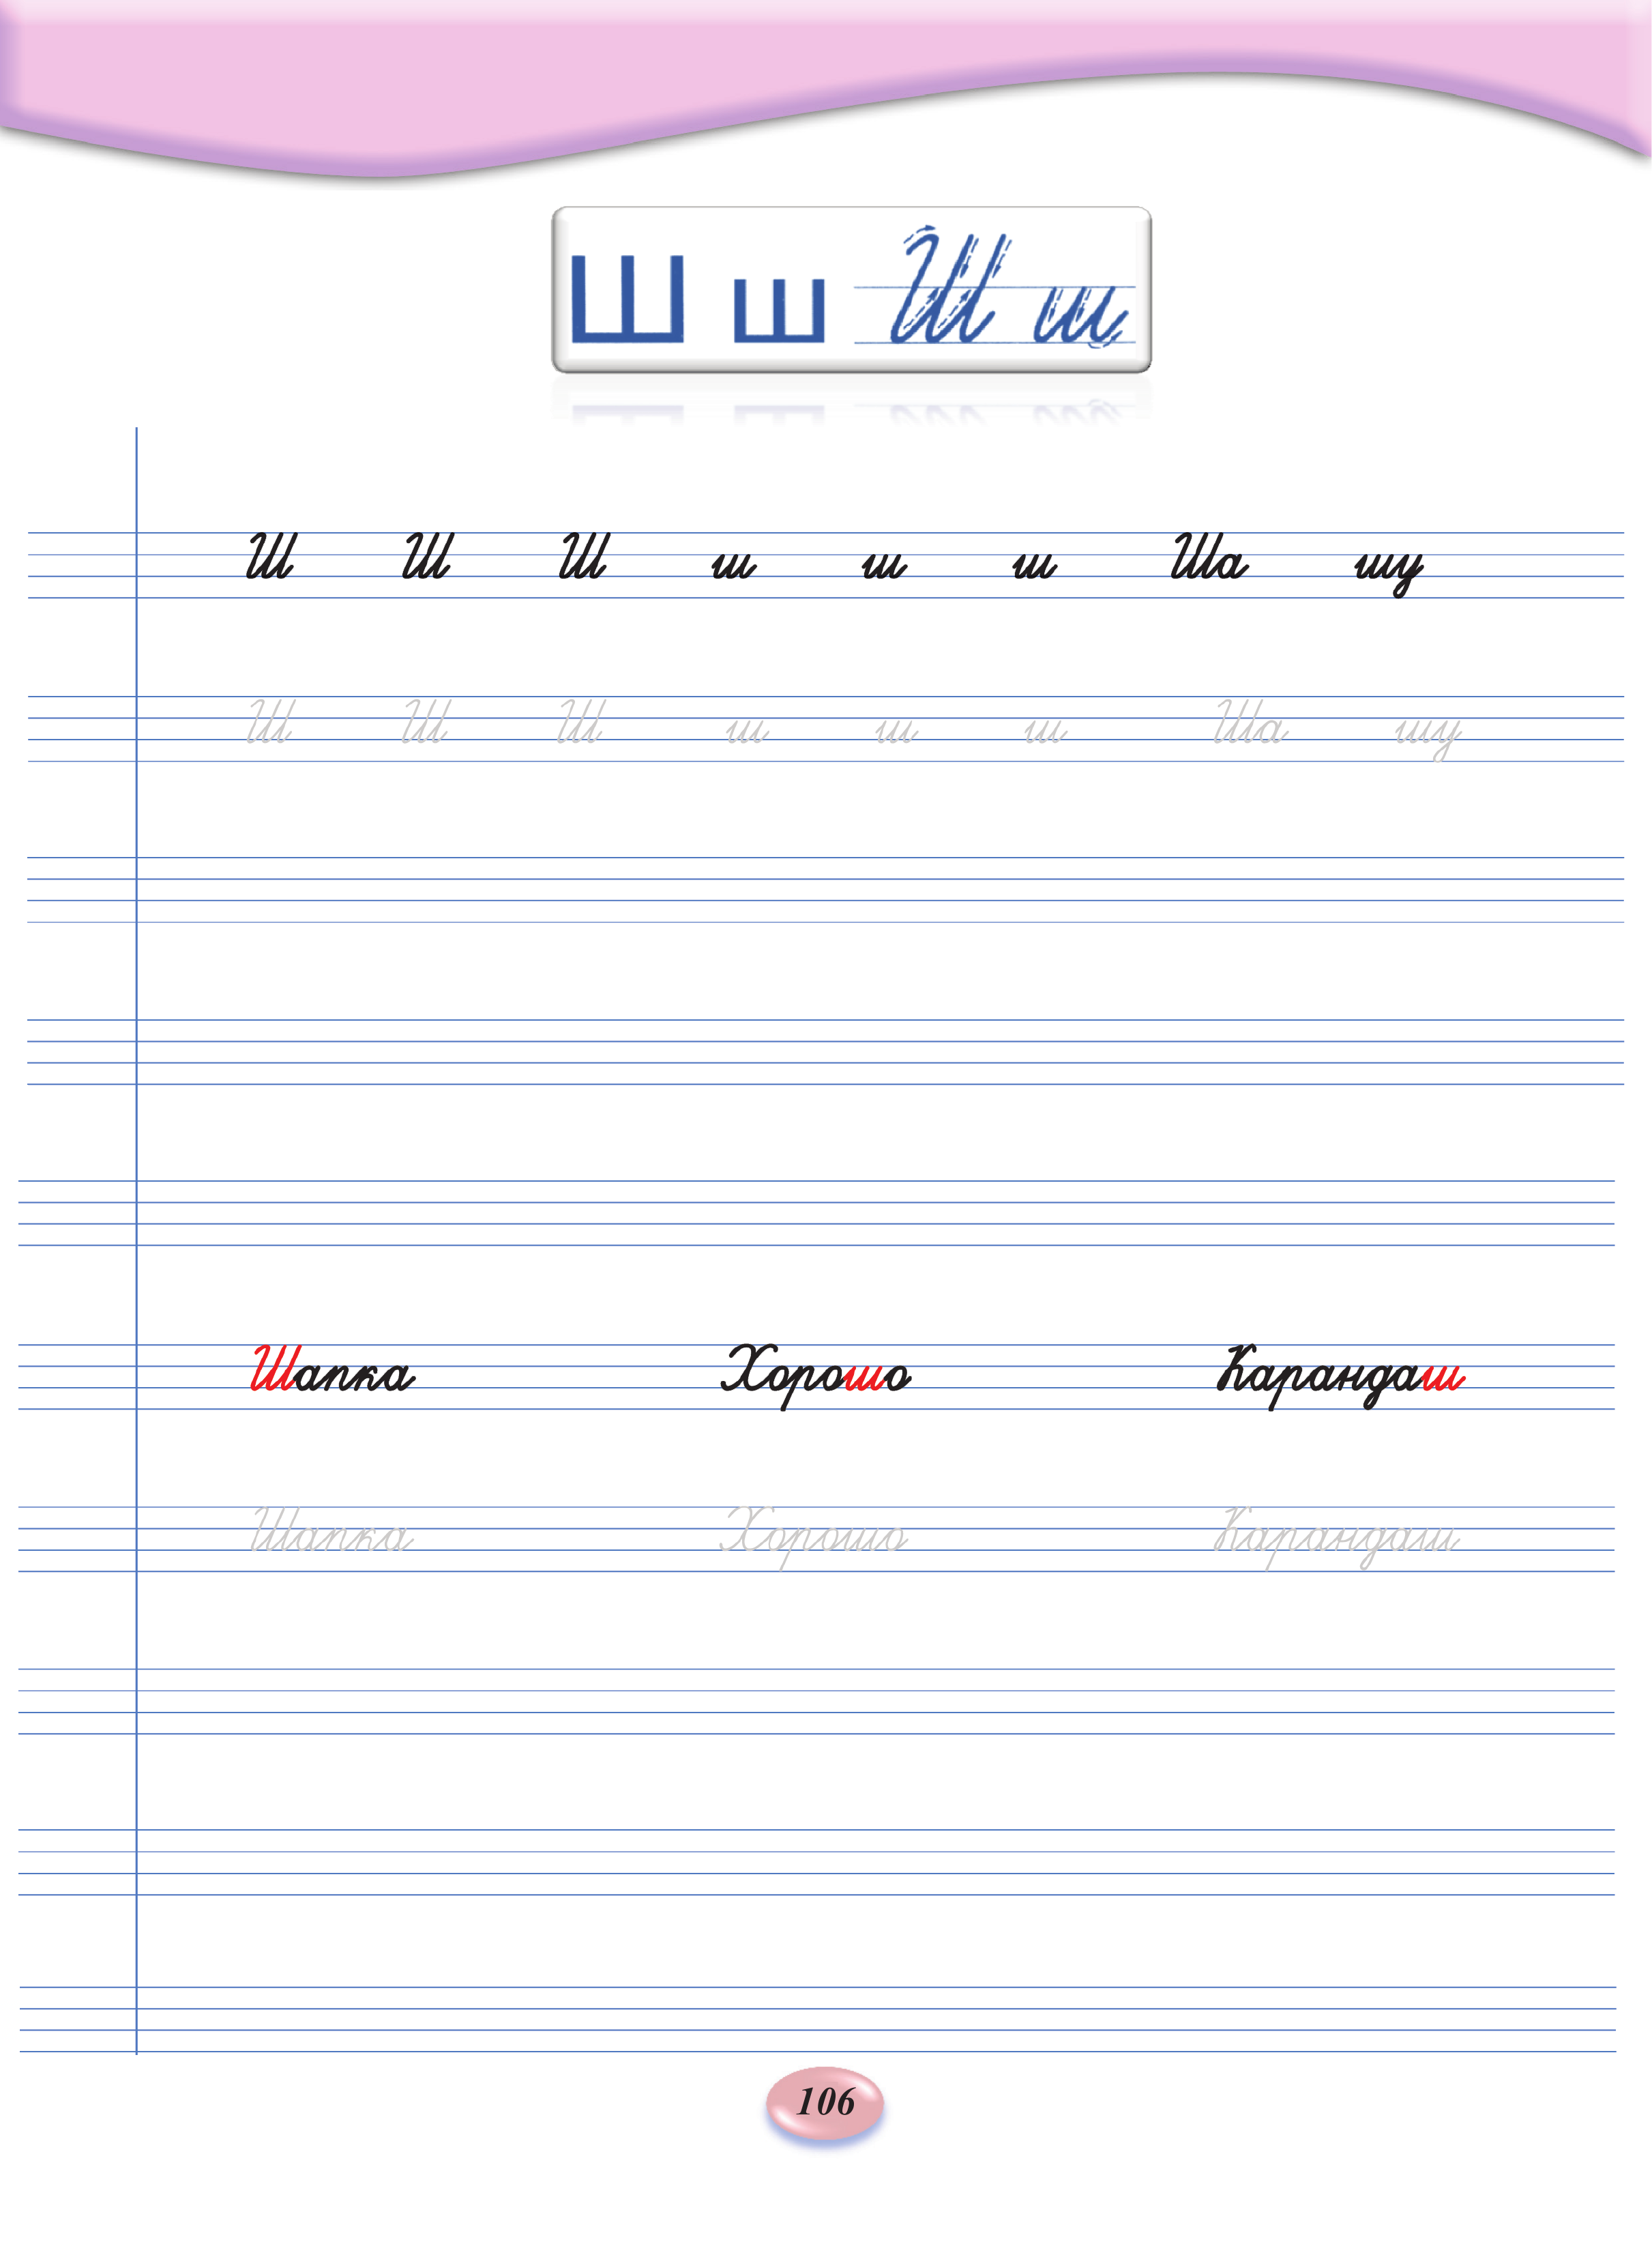 Ш ш Ш ш
Ш Ш Ш ш ш ш Ша шу
Ш Ш Ш ш ш ш Ша шу
Шапка Хорошо Карандаш
Шапка Хорошо Карандаш
106